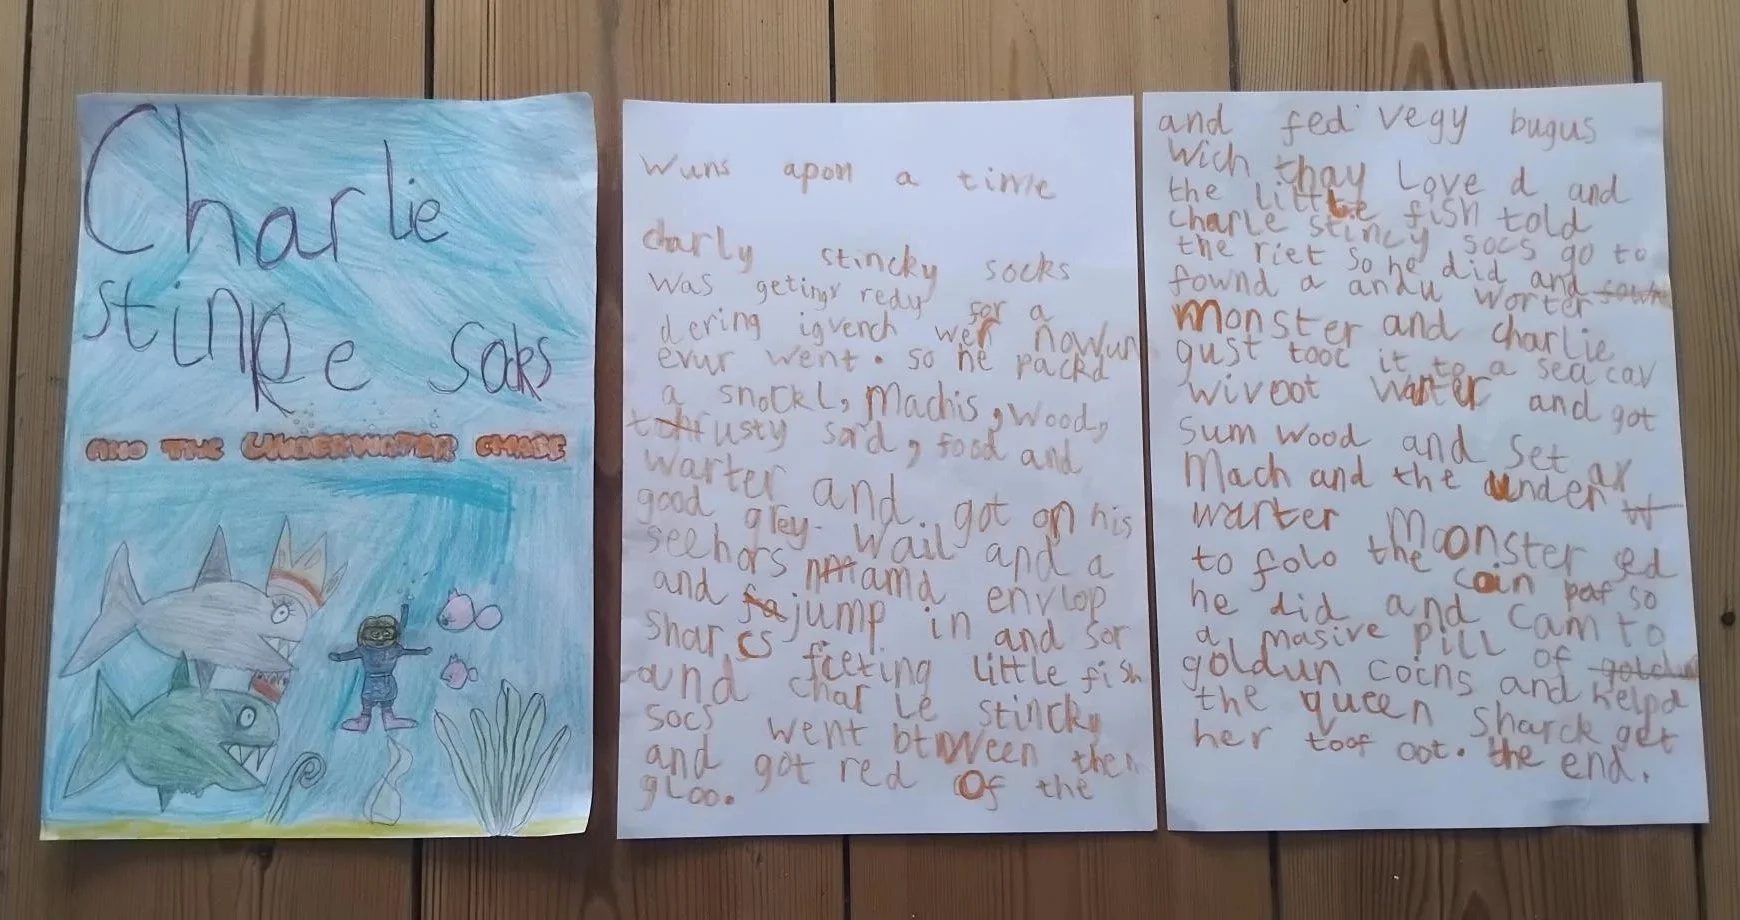 Charlie
stinke socks
AND THE UNDERWATER CHASE
Wuns apon a time
charly stincky socks
was getingr redy for a
dering igvench wer nowun
evur went. so he packd
a snorkl, machis, wood,
rusty sord, food and
warter and got on his
good grey. wail and a
seehors amd envlop
and jump in and sor
sharcs fieeting little fish
and char le stincky
socs went btnween then
and got red of the
gloo.
and fed vegy bugus
wich thay Love d and
the little fish told
charle stincy socs go to
the riet so he did and
fownd a andu worter
monster and charlie
gust tooc it to a sea cav
wivoot warter and got
sum wood and set ax
mach and the under
warter moonster sed
to folo the coin paf so
he did and cam to
a masive pill of
goldun coins and helpd
the queen sharck get
her toof oot. the end.